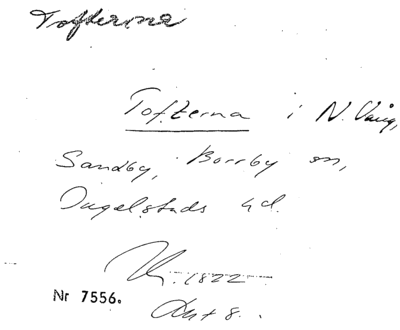 Tofterna
Tofterna i N. Vång,
Sandby, Borrby sn,
Ingelstads hd.
1822
Nr 7556.
Akt 8.